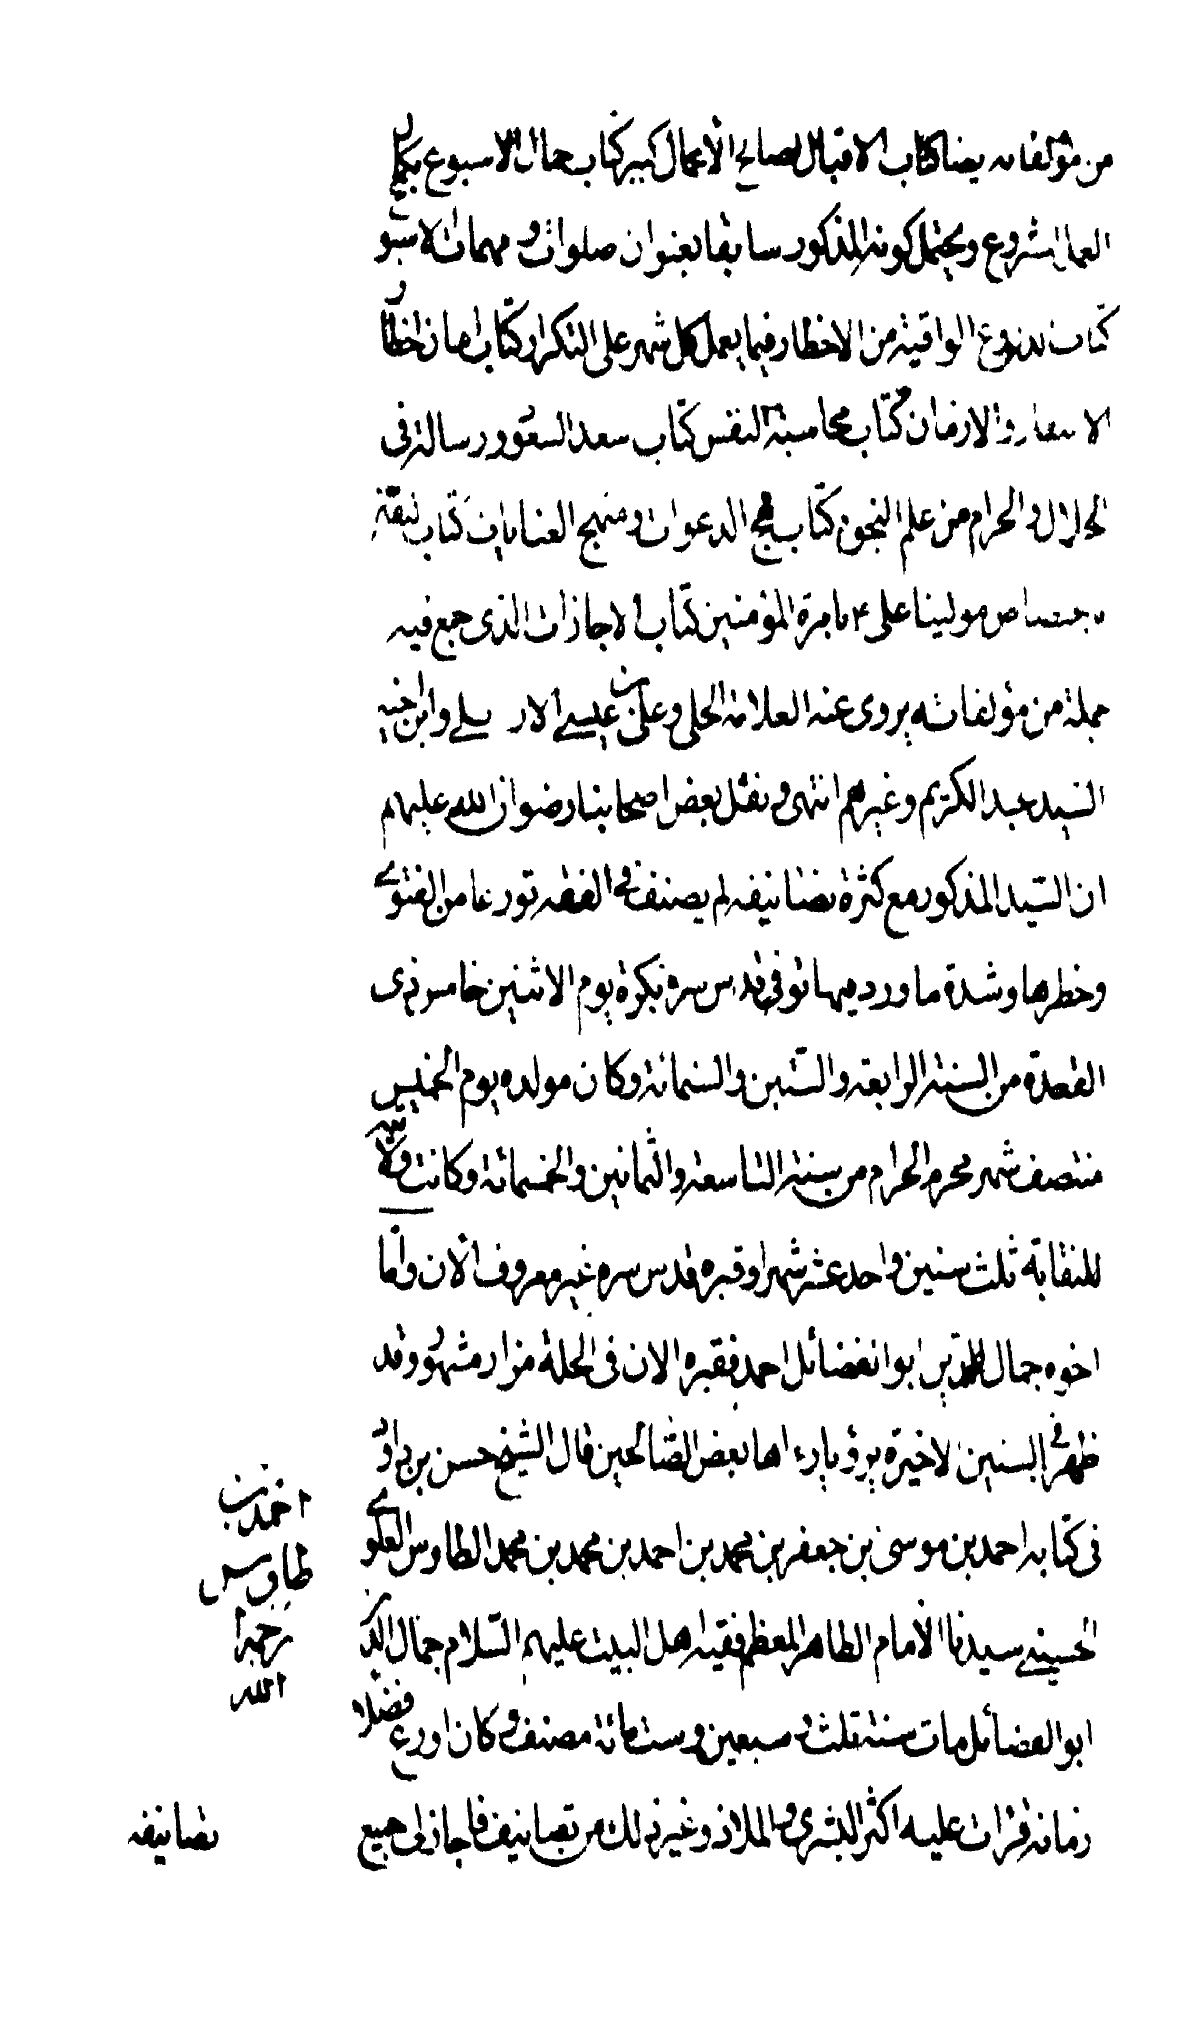 من مؤلفاته ايضا كتاب الاقبال لصالح الاعمال كبير كتاب جمال الاسبوع بكمال
العمل المشروع ويحتمل كونه المذكور سابقا بعنوان صلوات ومهمات الاسبوع
كتاب الدروع الواقية من الاخطار فيما يعمل كل شهر على التكرار كتاب امان اخطار
الاسفار والازمان كتاب محاسبة النفس كتاب سعد السعود رسالة في
الحلال والحرام من علم النجوم كتاب مهج الدعوات ومنهج العنايات كتاب
مولينا على ع بامرة المؤمنين كتاب الاجازات الذى جمع فيه
جملة من مؤلفاته يروى عنه العلامة الحلى وعلى بن عيسى الاربلي وابن اخيه
السيد عبد الكريم وغيرهم انتهى ونقل بعض اصحابنا رضوان الله عليهم
ان السيد المذكور مع كثرة تصانيفه لم يصنف في الفقه تورعا من الفتوى
وخطرها وشدة ما ورد فيها توفى قدس سره بكرة يوم الاثنين خامس ذى
القعدة من السنة الرابعة والستين والستمائة وكان مولده يوم الخميس
منتصف شهر محرم الحرام من سنة التاسعة والثمانين والخمسمائة وكانت ولايته
للنقابة ثلث سنين واحد عشر شهرا وقبره قدس سره غير معروف الآن واما
اخوه جمال الدين ابو الفضائل احمد فقبره الان فى الحلة مزار مشهور وقد
ظهر في السنين الاخيرة برؤيا رءاها بعض الصالحين قال الشيخ حسن بن داود
فى كتابه احمد بن موسى بن جعفر بن محمد بن احمد بن محمد بن محمد الطاوس العلوى
الحسينى سيدنا الامام الطاهر المعظم فقيه اهل البيت عليهم السلام جمال الدين
ابو الفضائل مات سنة ثلث وسبعين وستمائة مصنف وكان اورع فضلاء
زمانه قرات عليه اكثر البشرى والملاذ وغير ذلك من تصانيف فاجاز لى جميع
احمد بن
طاوس
رحمه
الله
تصانيفه